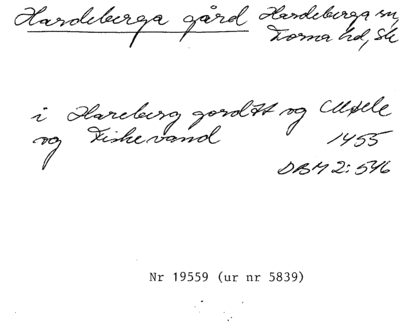 Hardeberga gård Hardeberga sn,
Torna hd, Sk
i Hareberg gordtt og Mølle
og Fiskevand 1455
DBM 2: 546
Nr 19559 (ur nr 5839)